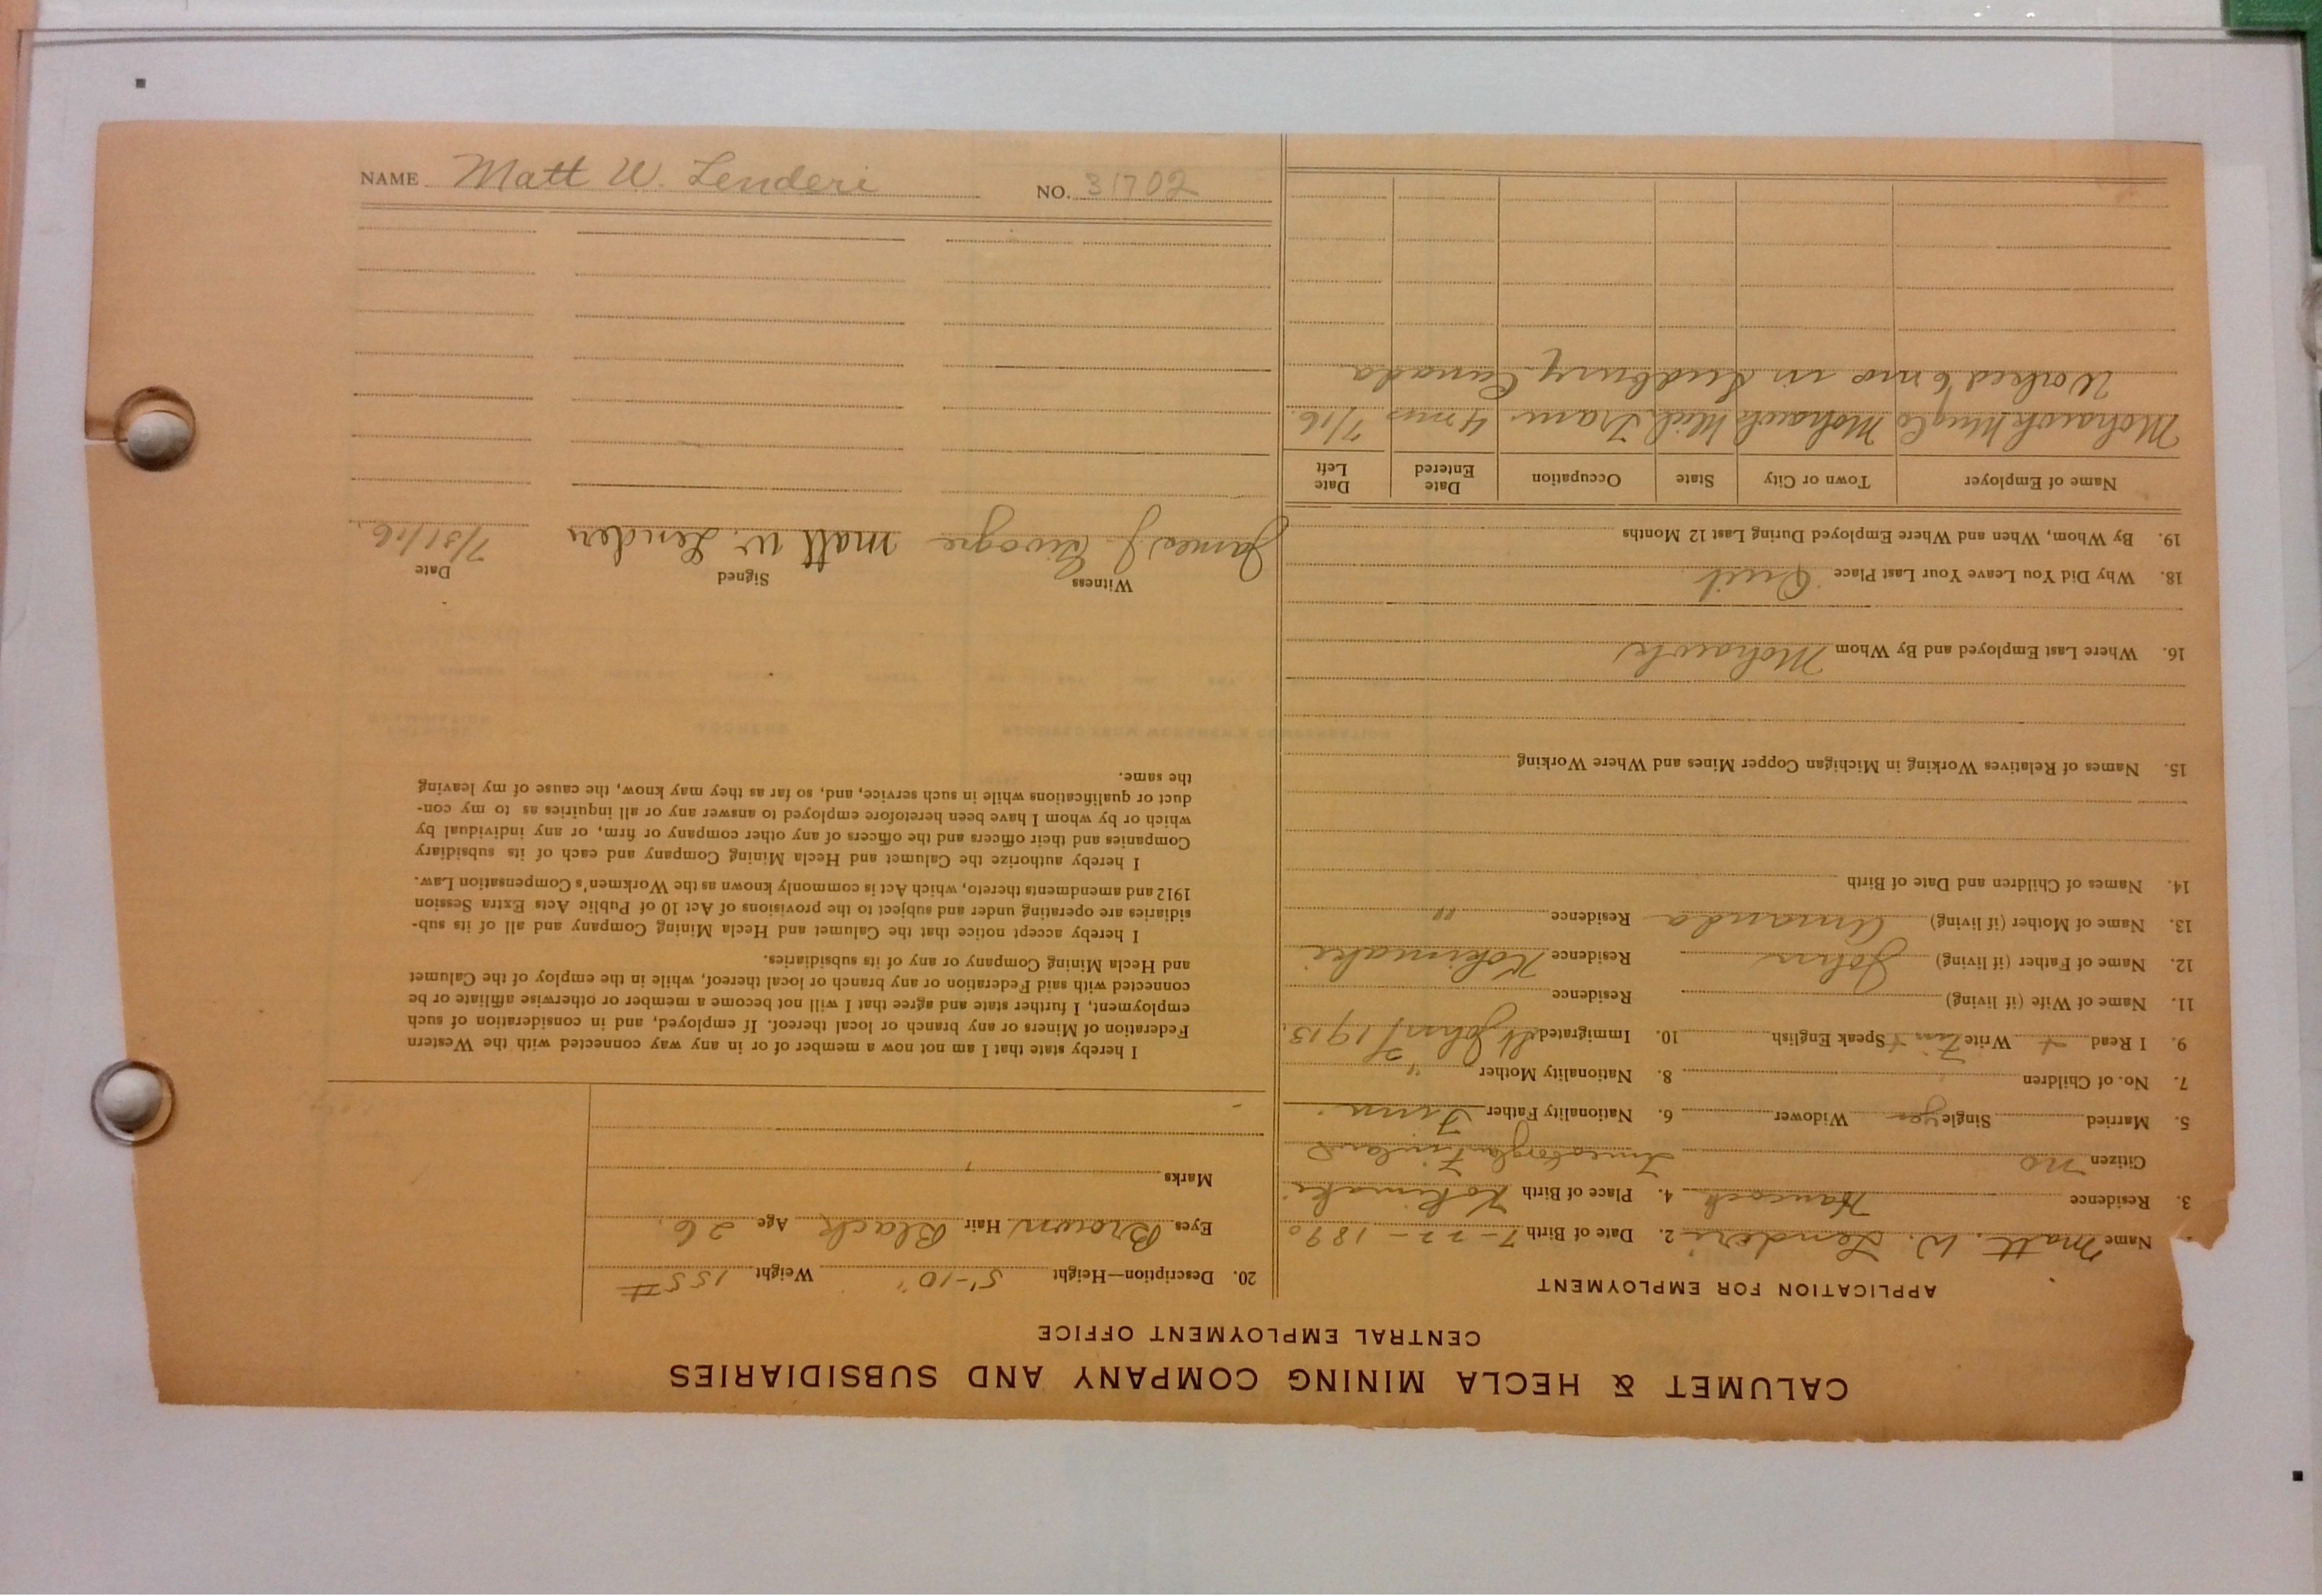 CALUMET & HECLA MINING COMPANY AND SUBSIDIARIES
CENTRAL EMPLOYMENT OFFICE
APPLICATION FOR EMPLOYMENT
Name Matt. W. Lenderi 2. Date of Birth 7-22-1890
3. Residence Hancock 4. Place of Birth Kokimaki
Citizen no Finland
5. Married Single yes Widower 6. Nationality Father Finn
7. No. of Children 8. Nationality Mother "
9. I Read + Write Finn + Speak English 10. Immigrated St Johns / 1913
11. Name of Wife (if living) Residence
12. Name of Father (if living) John Residence Kokimaki
13. Name of Mother (if living) Amanda Residence "
14. Names of Children and Date of Birth
15. Names of Relatives Working in Michigan Copper Mines and Where Working
16. Where Last Employed and By Whom Mohawk
18. Why Did You Leave Your Last Place Quit
19. By Whom, When and Where Employed During Last 12 Months
Name of Employer Town or City State Occupation Date Entered Date Left
Mohawk Mng Co Mohawk Mich Tram 4 mos 7/16
Worked 6 mo in Sudbury Canada
20. Description—Height 5'-10" Weight 155 #
Eyes Brown Hair Black Age 26
Marks
I hereby state that I am not now a member of or in any way connected with the Western
Federation of Miners or any branch or local thereof. If employed, and in consideration of such
employment, I further state and agree that I will not become a member or otherwise affiliate or be
connected with said Federation or any branch or local thereof, while in the employ of the Calumet
and Hecla Mining Company or any of its subsidiaries.
I hereby accept notice that the Calumet and Hecla Mining Company and all of its sub-
sidiaries are operating under and subject to the provisions of Act 10 of Public Acts Extra Session
1912 and amendments thereto, which Act is commonly known as the Workmen's Compensation Law.
I hereby authorize the Calumet and Hecla Mining Company and each of its subsidiary
Companies and their officers and the officers of any other company or firm, or any individual by
which or by whom I have been heretofore employed to answer any or all inquiries as to my con-
duct or qualifications while in such service, and, so far as they may know, the cause of my leaving
the same.
Witness Signed Date
James J. matt w. Lenderi 7/31/16
NAME Matt W. Lenderi NO. 31702